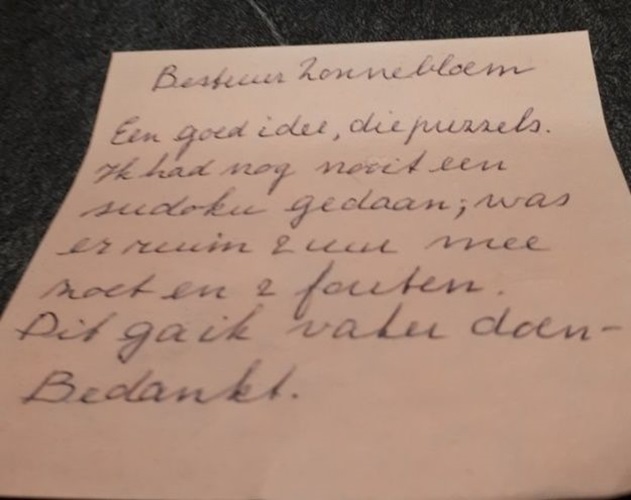 Bestuur Zonnebloem
Een goed idee, die puzzels.
Ik had nog nooit een
sudoku gedaan; was
er ruim 2 uur mee
zoet en 2 fouten.
Dit ga ik vaker doen-
Bedankt.